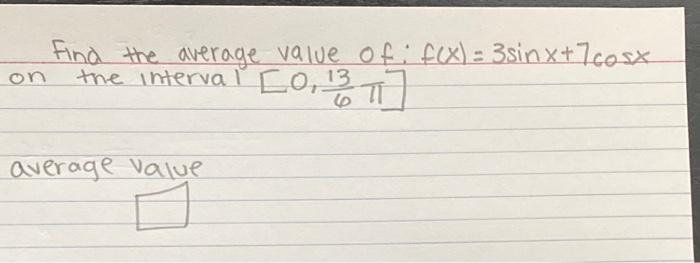 Find the average value of: f(x) = 3sinx+7cosx
on the interval [0, 13/6 π]
average value